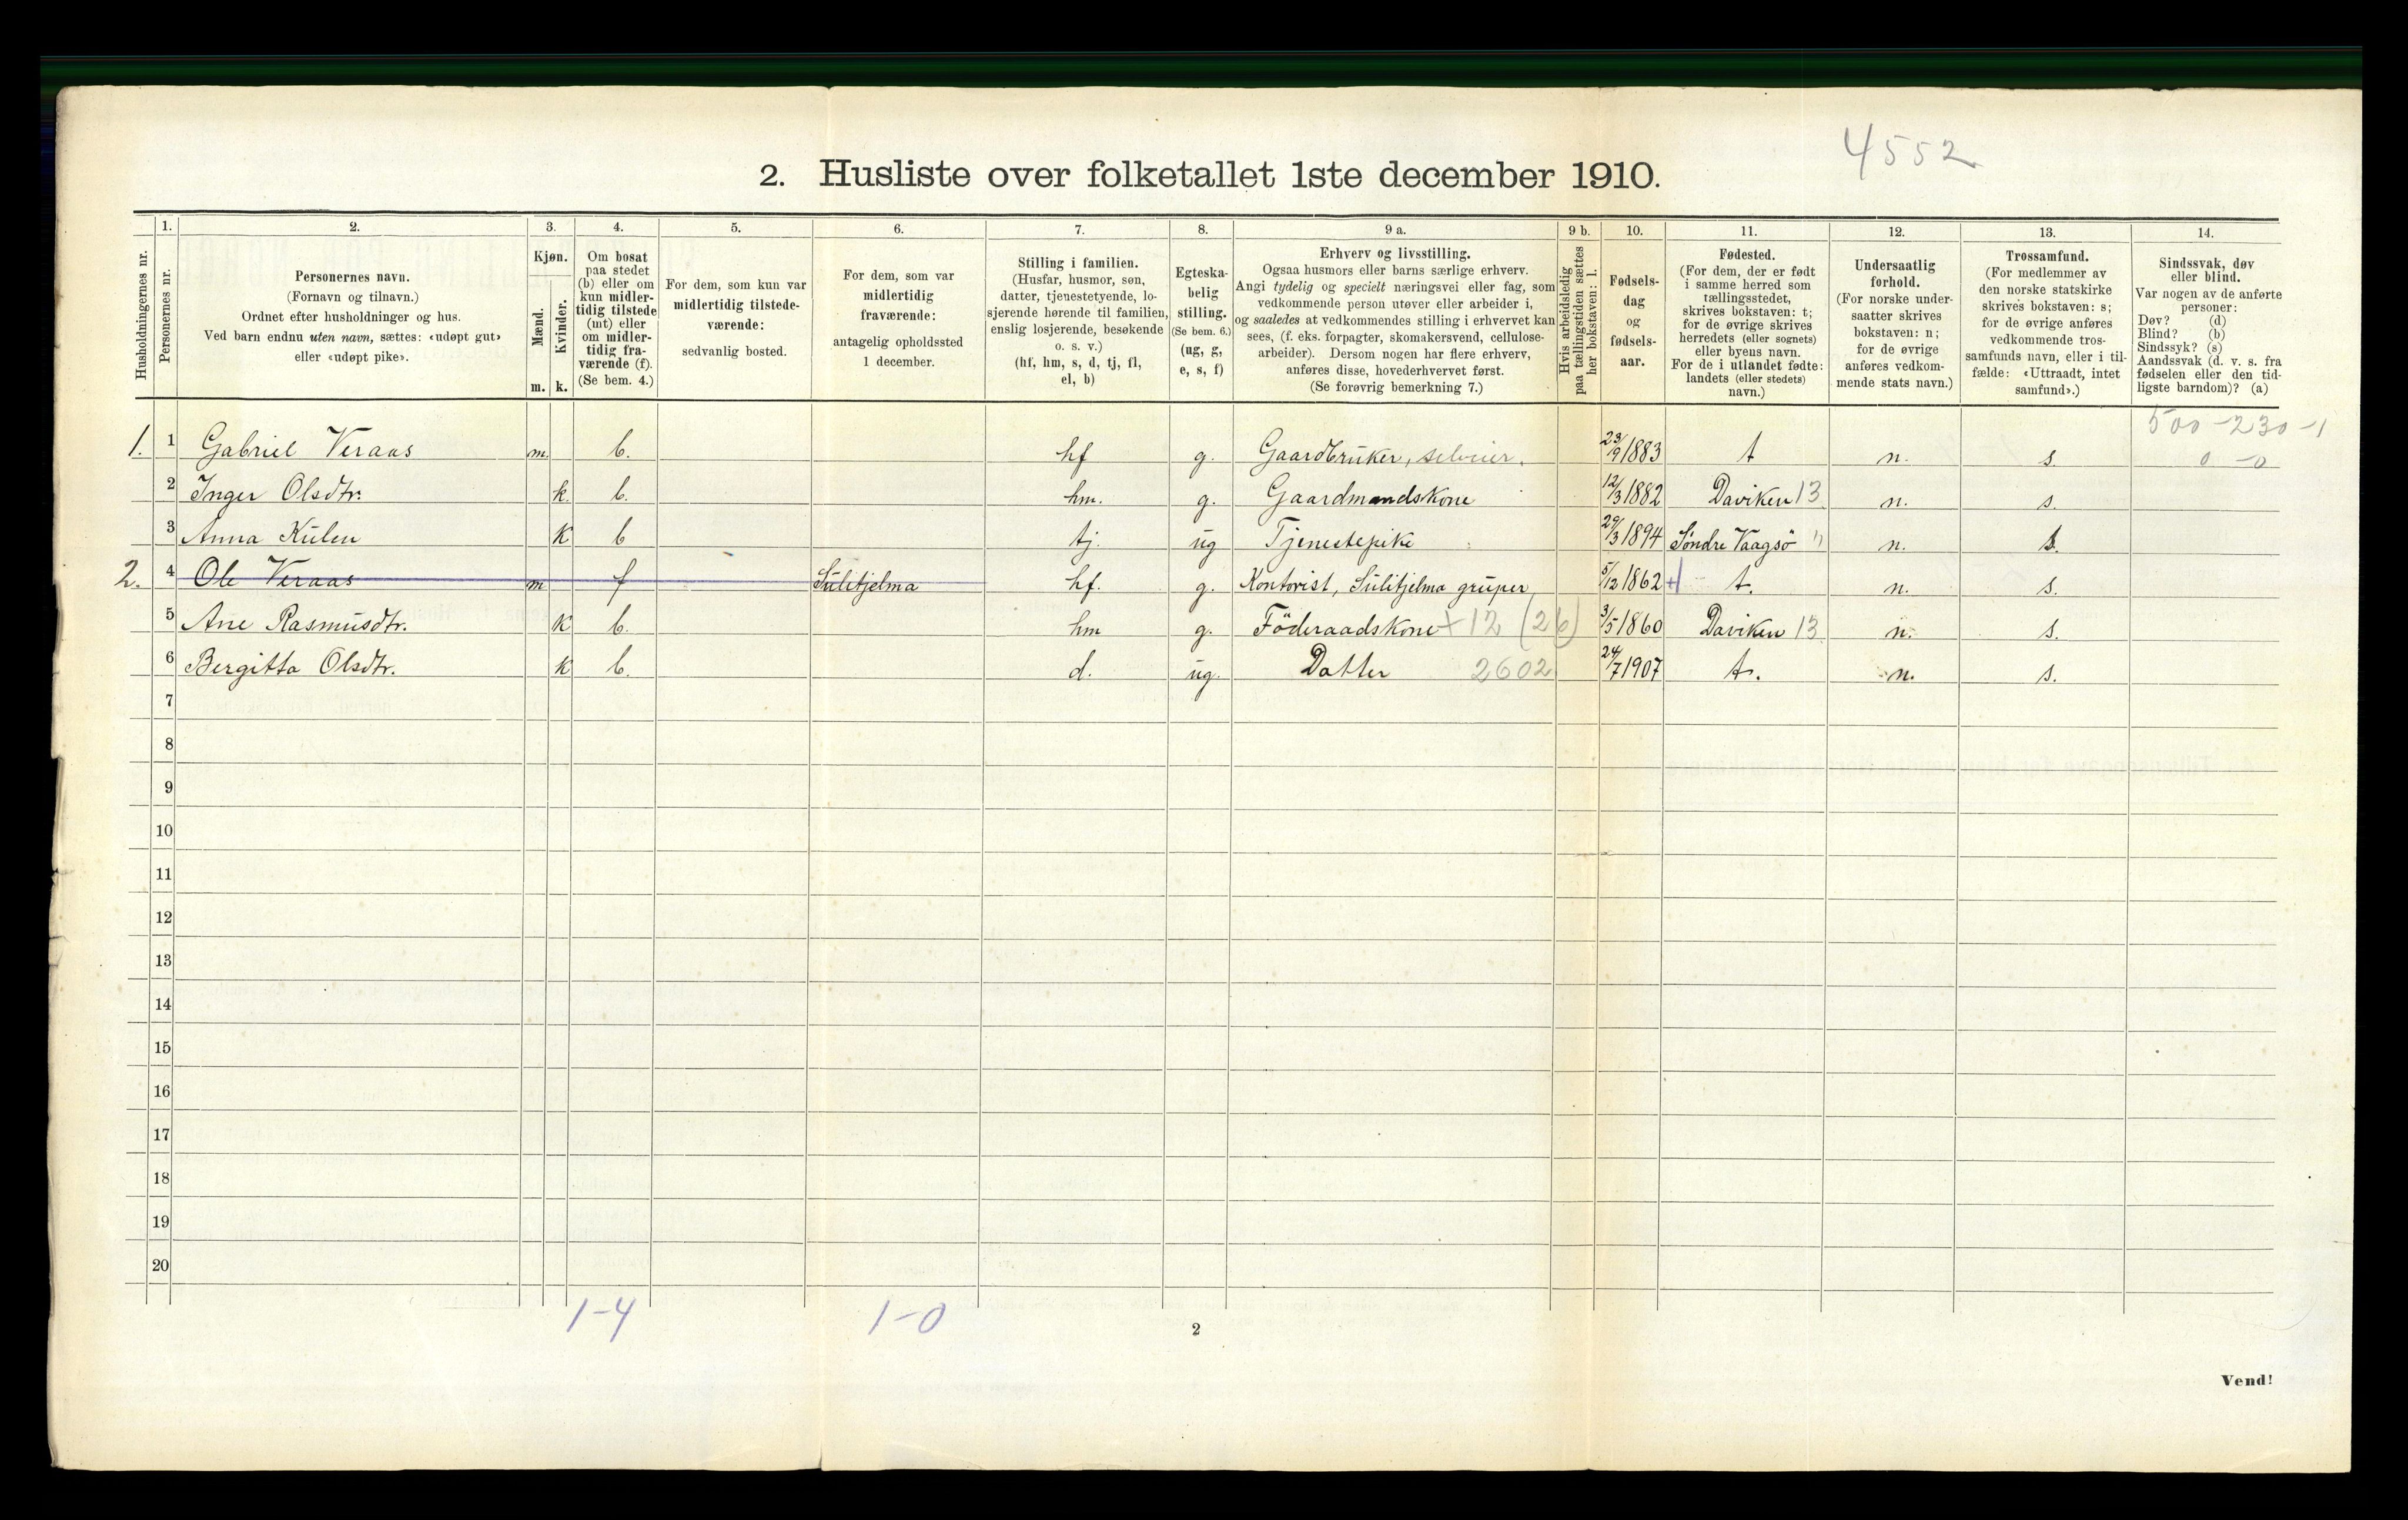 4552
2. Husliste over folketallet 1ste december 1910.
Husholdningernes nr.
1. Personernes nr.
2.
Personernes navn.
(Fornavn og tilnavn.)
Ordnet efter husholdninger og hus.
Ved barn endnu uten navn, sættes: «udøpt gut»
eller «udøpt pike».
3.
Kjøn.
Mænd. m.
Kvinder. k.
4.
Om bosat
paa stedet
(b) eller om
kun midler-
tidig tilstede
(mt) eller
om midler-
tidig fra-
værende (f).
(Se bem. 4.)
5.
For dem, som kun var
midlertidig tilstede-
værende:
sedvanlig bosted.
6.
For dem, som var
midlertidig
fraværende:
antagelig opholdssted
1 december.
7.
Stilling i familien.
(Husfar, husmor, søn,
datter, tjenestetyende, lo-
sjerende hørende til familien,
enslig losjerende, besøkende
o. s. v.)
(hf, hm, s, d, tj, fl,
el, b)
8.
Egteska-
belig
stilling.
(Se bem. 6.)
(ug, g,
e, s, f)
9 a.
Erhverv og livsstilling.
Ogsaa husmors eller barns særlige erhverv.
Angi tydelig og specielt næringsvei eller fag, som
vedkommende person utøver eller arbeider i,
og saaledes at vedkommendes stilling i erhvervet kan
sees, (f. eks. forpagter, skomakersvend, cellulose-
arbeider). Dersom nogen har flere erhverv,
anføres disse, hovederhvervet først.
(Se forøvrig bemerkning 7.)
9 b.
Hvis arbeidsledig
paa tællingstiden sættes
her bokstaven: l.
10.
Fødsels-
dag
og
fødsels-
aar.
11.
Fødested.
(For dem, der er født
i samme herred som
tællingsstedet,
skrives bokstaven: t;
for de øvrige skrives
herredets (eller sognets)
eller byens navn.
For de i utlandet fødte:
landets (eller stedets)
navn.)
12.
Undersaatlig
forhold.
(For norske under-
saatter skrives
bokstaven: n;
for de øvrige
anføres vedkom-
mende stats navn.)
13.
Trossamfund.
(For medlemmer av
den norske statskirke
skrives bokstaven: s;
for de øvrige anføres
vedkommende tros-
samfunds navn, eller i til-
fælde: «Uttraadt, intet
samfund».)
14.
Sindssvak, døv
eller blind.
Var nogen av de anførte
personer:
Døv? (d)
Blind? (b)
Sindssyk? (s)
Aandssvak (d. v. s. fra
fødselen eller den tid-
ligste barndom)? (a)
500-230-1
1. 1 Gabriel Veraas m. b. hf g. Gaardbruker, selveier. 23/9 1883 t n. s. 0-0
2 Inger Olsdtr. k. b. hm. g. Gaardmandskone 12/3 1882 Daviken 13 n. s.
3 Anna Kulen k b tj. ug Tjenestepike 29/3 1894 Søndre Vaagsö " n. s.
2. 4 Ole Veraas m f Sulitjelma hf. g. Kontorist, Sulitjelma gruper, 5/12 1862 + t. n. s.
5 Ane Rasmusdtr. k b. hm g. Föderaadskone +12 (26) 3/5 1860 Daviken 13 n. s.
6 Bergitta Olsdtr. k b. d. ug. Datter 2602 24/7 1907 t. n. s.
7
8
9
10
11
12
13
14
15
16
17
18
19
20
1-4 1-0
2
Vend!